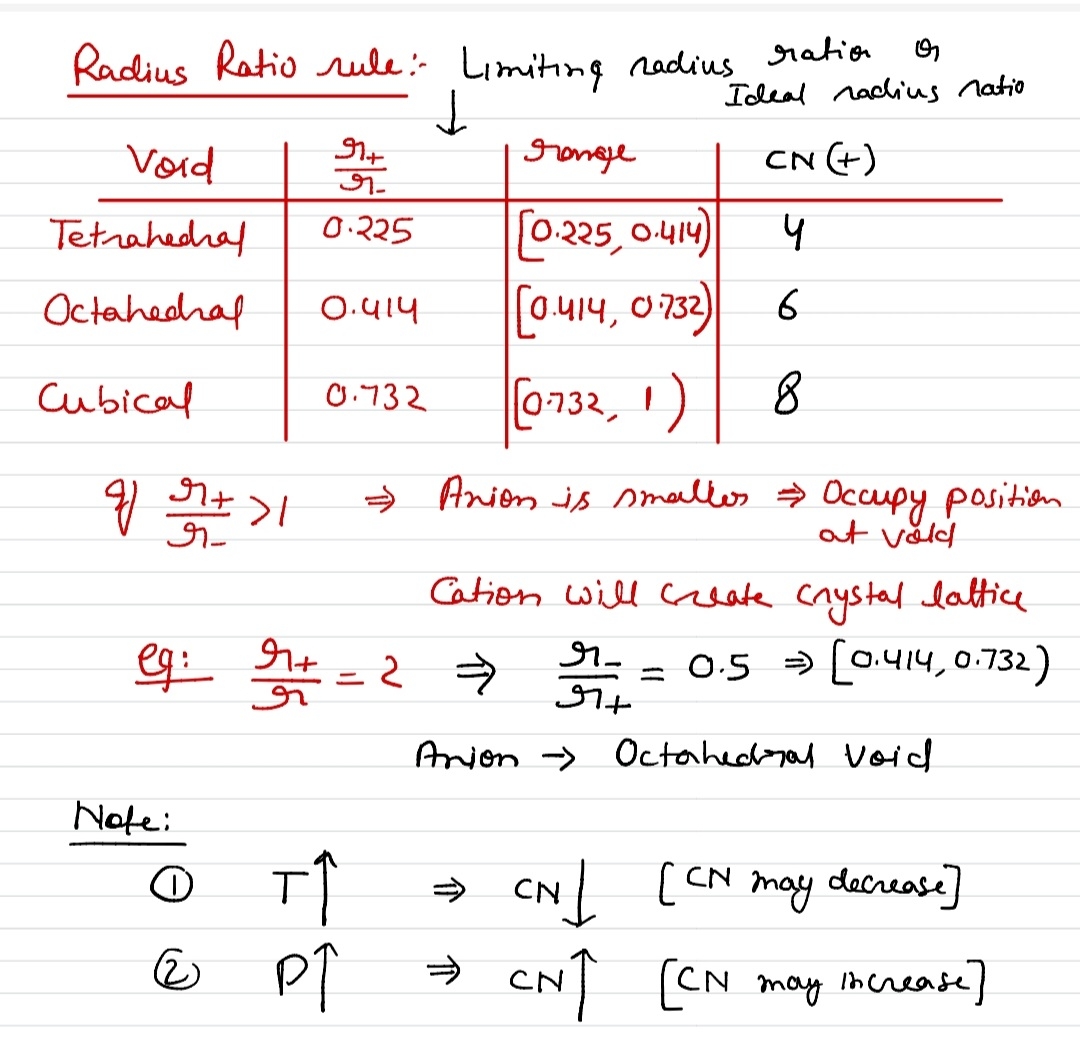 Radius Ratio rule:- Limiting radius ratio or
Ideal radius ratio
↓
Void | r+/r- | range | CN (+)
Tetrahedral | 0.225 | [0.225, 0.414) | 4
Octahedral | 0.414 | [0.414, 0.732) | 6
Cubical | 0.732 | [0.732, 1) | 8
If r+/r- >1 ⇒ Anion is smaller ⇒ Occupy position
at void
Cation will create crystal lattice
eg: r+/r = 2 ⇒ r-/r+ = 0.5 ⇒ [0.414, 0.732)
Anion → Octahedral Void
Note:
① T↑ ⇒ CN↓ [CN may decrease]
② P↑ ⇒ CN↑ [CN may increase]